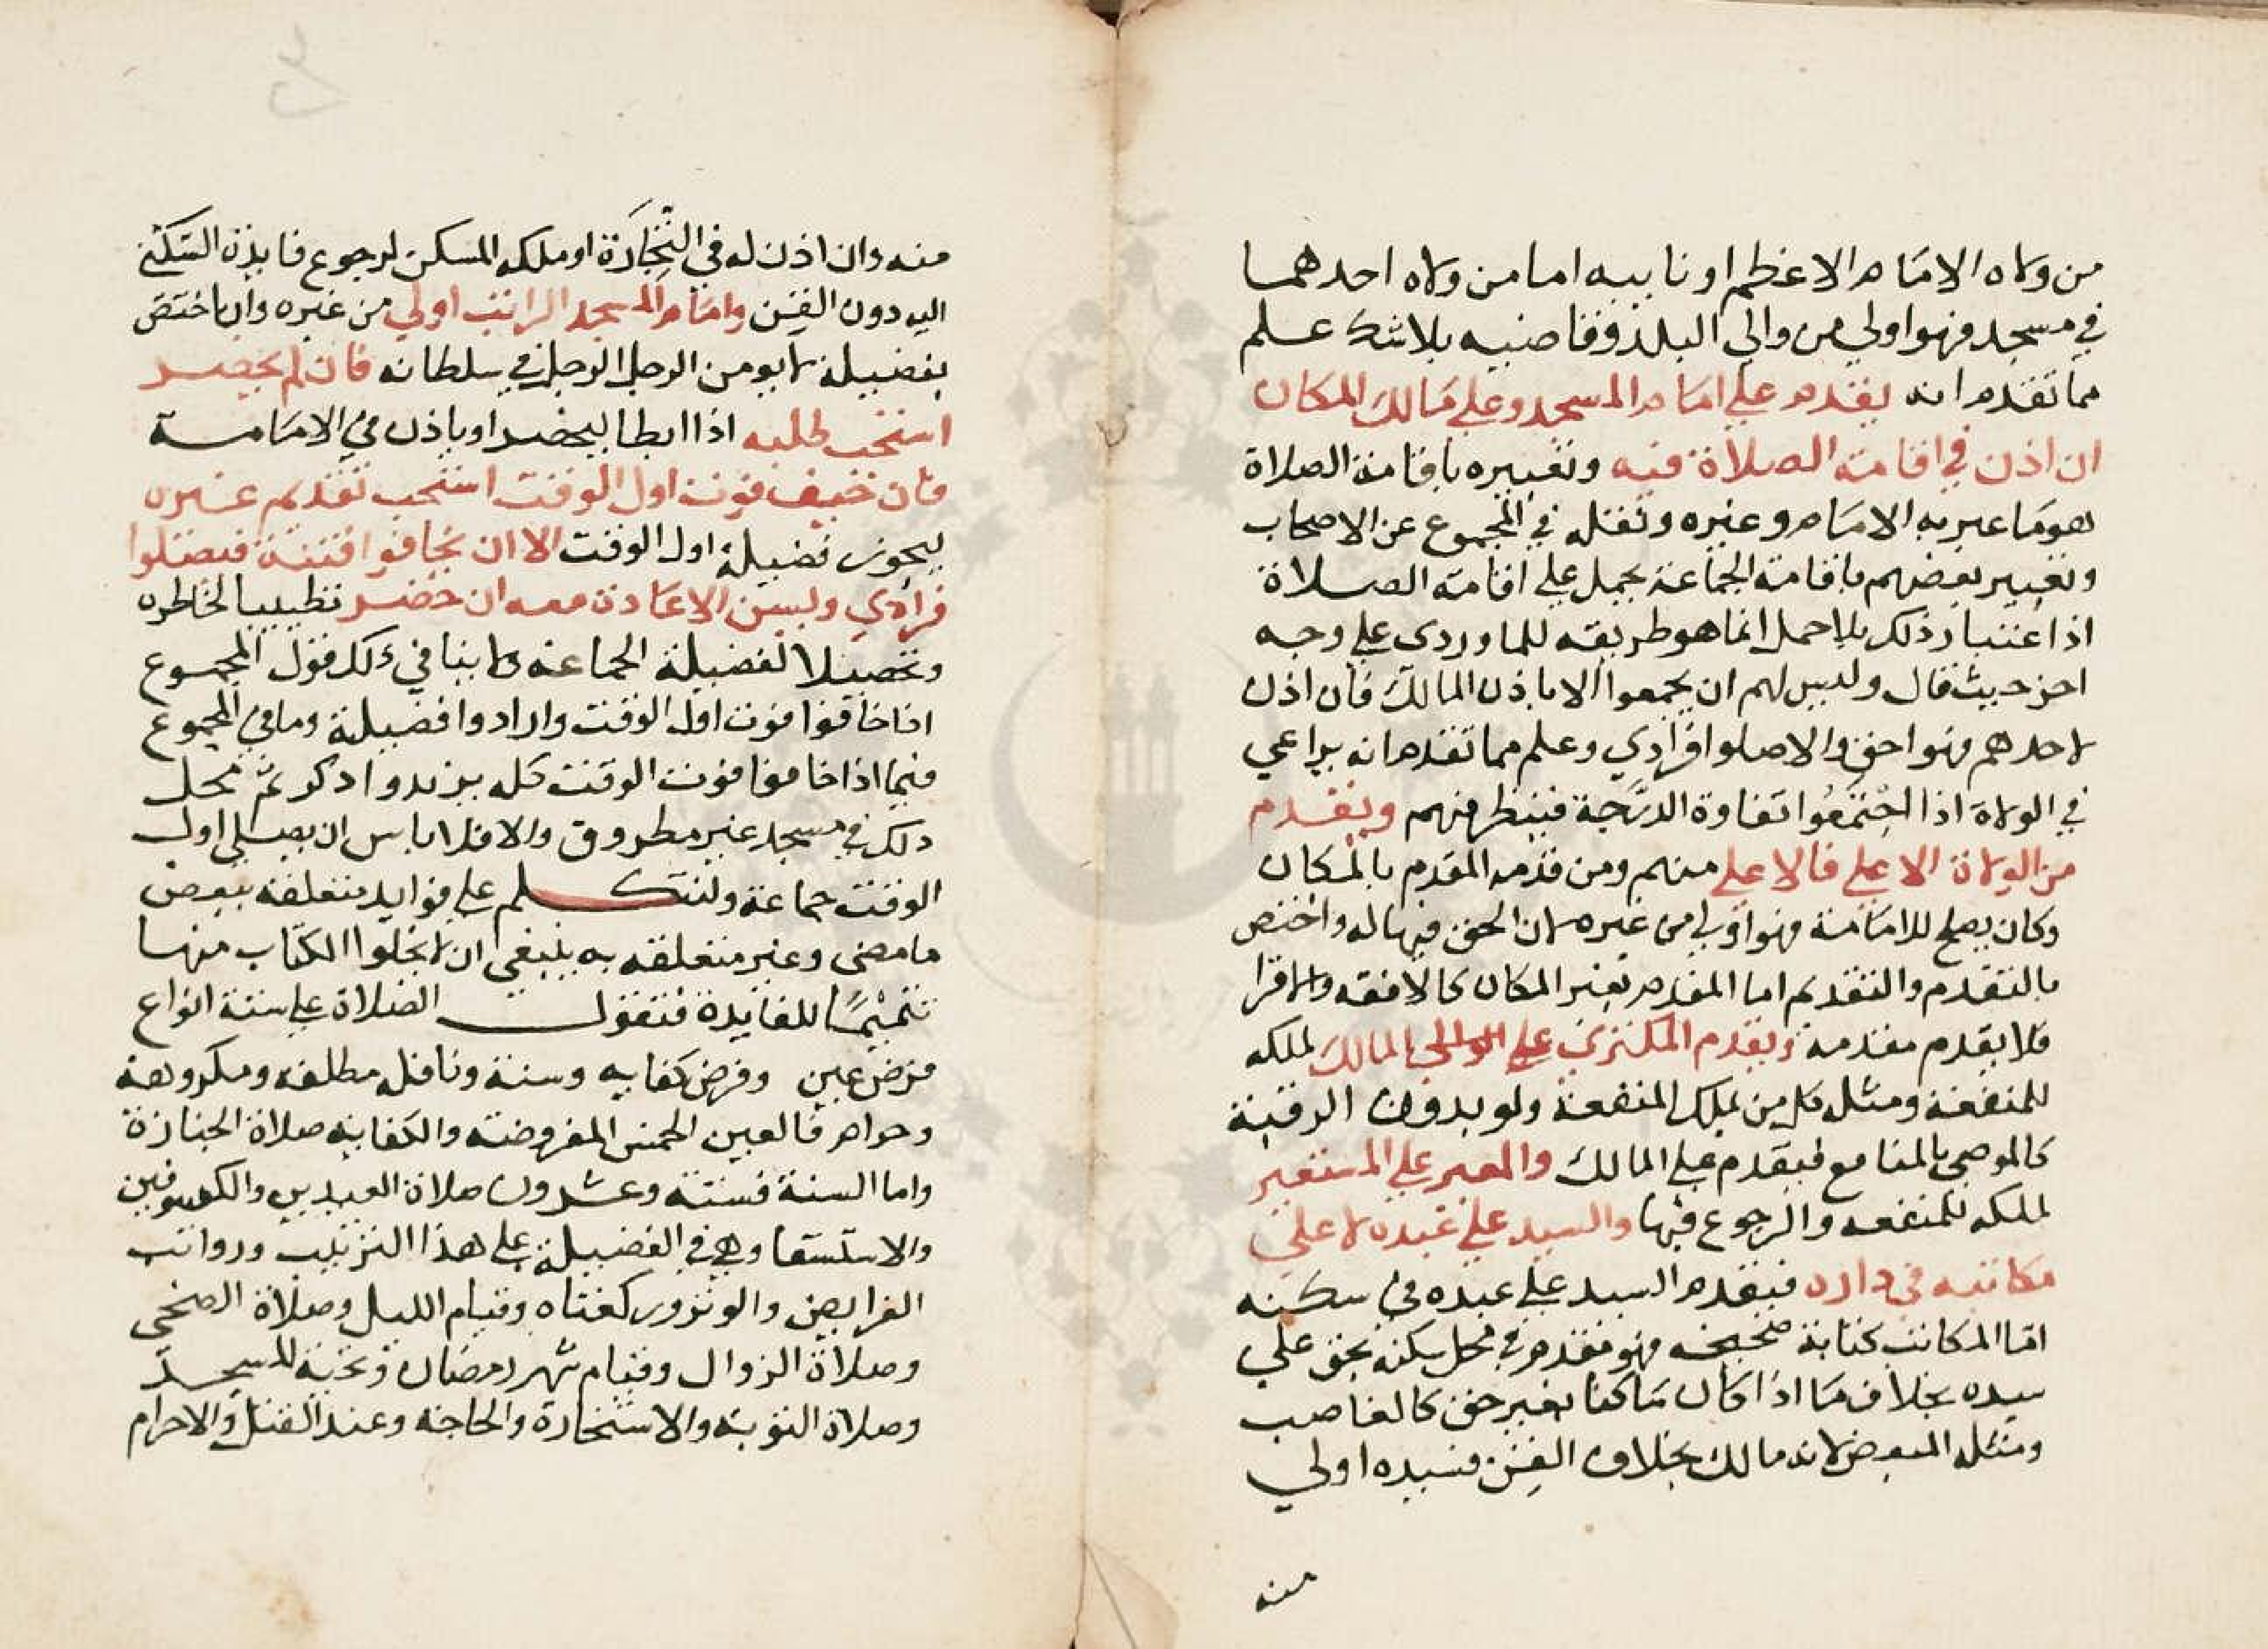 من ولاه الامام الاعظم او نايبه اما من ولاه احدهما
في مسجد فهو اولي من والي البلد وقاضيه بلا شك علم
مما تقدم انه يقدم علي امام المسجد وعلي مالك المكان
ان اذن في اقامة الصلاة فيه وتعبيره باقامة الصلاة
هو ما عبر به الامام وغيره ونقله في المجموع عن الاصحاب
وتعبير بعضهم باقامة الجماعة يحمل علي اقامة الصلاة
اذ اعتبار ذلك بلا حمل انما هو طريقه للماوردي علي وجه
اخر حيث قال وليس لهم ان يجمعوا الا باذن المالك فان اذن
لاحدهم فهو احق والا صلوا فرادي وعلم مما تقدم انه يراعي
في الولاة اذا اجتمعوا تفاوة الدرجة فينظر فيهم ويقدم
من الولاة الاعلي فالاعلي منهم ومن قدمه المقدم بالمكان
وكان يصلح للامامة فهو اولي من غيره لان الحق فيها له واختص
بالتقدم والتقديم اما المقدم بغير المكان كالافقه والاقرا
فلا يقدم مقدمه ويقدم المكتري علي المالك لملكه
للمنفعة ومثله كل من يملك المنفعة ولو بدون الرقبة
كالموصي بالمنافع فيقدم علي المالك والمعير علي المستعير
لملكه للمنفعه والرجوع فيها والسيد علي عبده لا علي
مكاتبه في داره فيقدم السيد علي عبده في سكنه
اما المكاتب كتابة صحيحه فهو مقدم في محل سكنه بحق علي
سيده بخلاف ما اذا كان ساكنا بغير حق كالغاصب
ومثله المبعض لانه مالك بخلاف القن فسيده اولي
منه
منه وان اذن له في التجارة او ملكه المسكن لرجوع فايدة السكني
اليه دون القن وامام المسجد الراتب اولي من غيره وان اختص
بفضيلة لا يومن الرجل الرجل في سلطانه فان لم يحضر
استحب طلبه اذا ابطا ليحضر او ياذن في الامامة
فان خيف فوت اول الوقت استحب تقديم غيره
ليحوز فضيلة اول الوقت الا ان يخافوا فتنة فيصلوا
فرادي ويسن الاعادة معه ان حضر تطييبا لخاطره
وتحصيلا لفضيلة الجماعة ولا ينافي ذلك قول المجموع
اذا خافوا فوت اول الوقت وارادوا فضيلة وما في المجموع
فيما اذا خافوا فوت الوقت كله يزيد واذكر ثم محل
ذلك في مسجد غير مطروق والا فلا باس ان يصلي اول
الوقت جماعة ولنتكلم علي فوايد متعلقة ببعض
ما مضي وغير متعلقه به ينبغي ان لا يخلوا الكتاب منها
تتميما للفايدة فنقول الصلاة علي ستة انواع
فرض عين وفرض كفايه وسنة ونافله مطلقه ومكروهة
وحرام فالعين الخمس المفروضته والكفاية صلاة الجنازة
واما السنة فستة وعشرون صلاة العيدين والكسوفين
والاستسقا وهي في الفضيلة علي هذا الترتيب ورواتب
الفرايض والوتر وركعتاه وقيام الليل وصلاة الضحي
وصلاة الزوال وقيام شهر رمضان وتحية المسجد
وصلاة التوبة والاستخارة والحاجة وعند القتل والاحرام